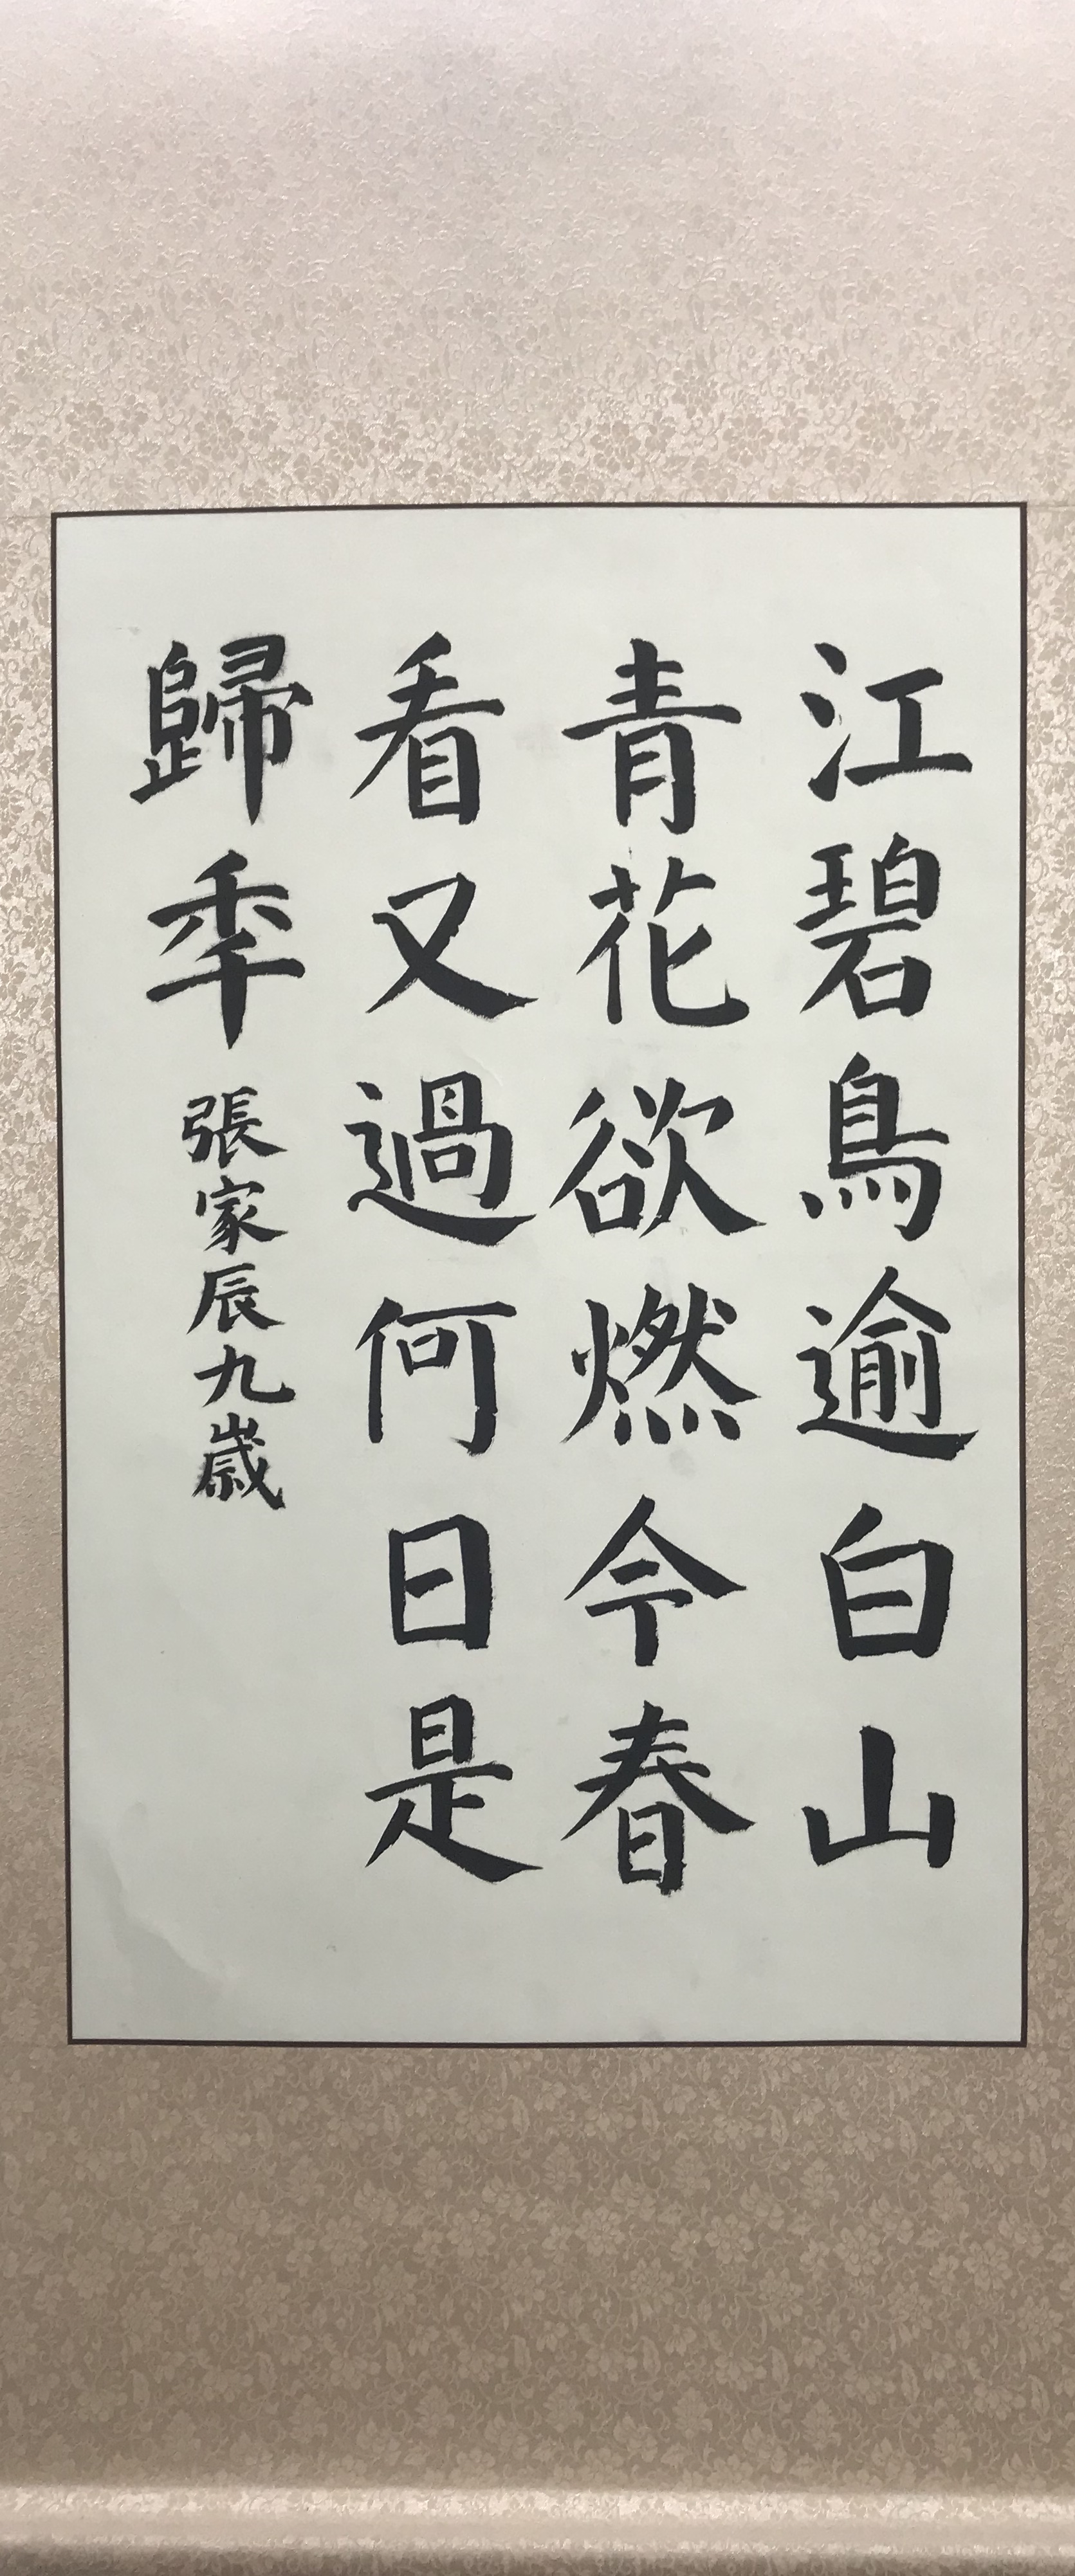 江碧鳥逾白山
青花欲燃今春
看又過何日是
歸秊 張家辰九歲